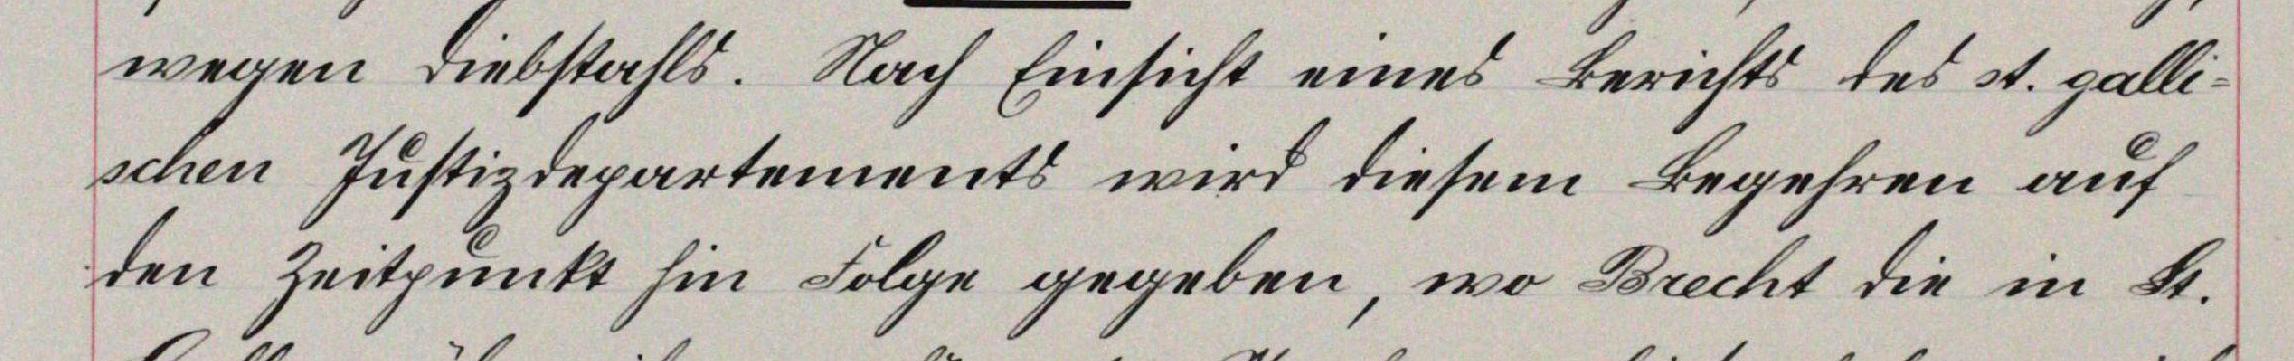 wegen Diebstahls. Nach Einsicht eines Berichts des st. galli-
schen Justizdepartements wird diesem Begehren auf
den Zeitpunkt hin Folge gegeben, wo Brecht die in St.